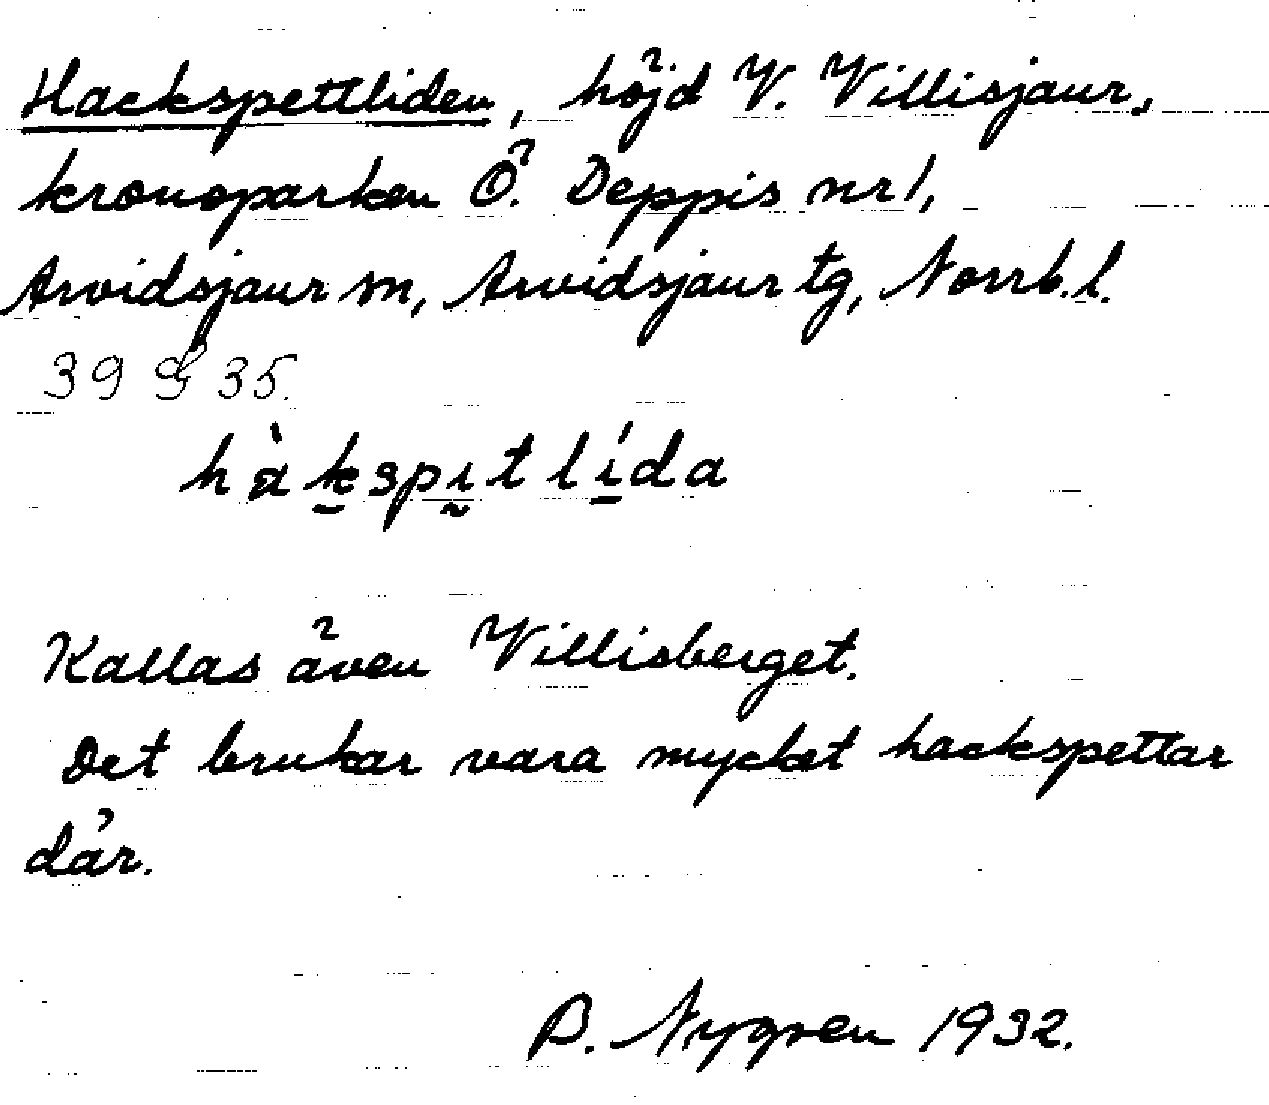 Hackspettliden, höjd V. Villisjaur,
kronoparken Ö. Deppis nr 1,
Arvidsjaur sn, Arvidsjaur tg, Norrb. l.
39 35.
hàkspitlída
Kallas även Villisberget.
Det brukar vara mycket hackspettar
där.
B. Nygren 1932.